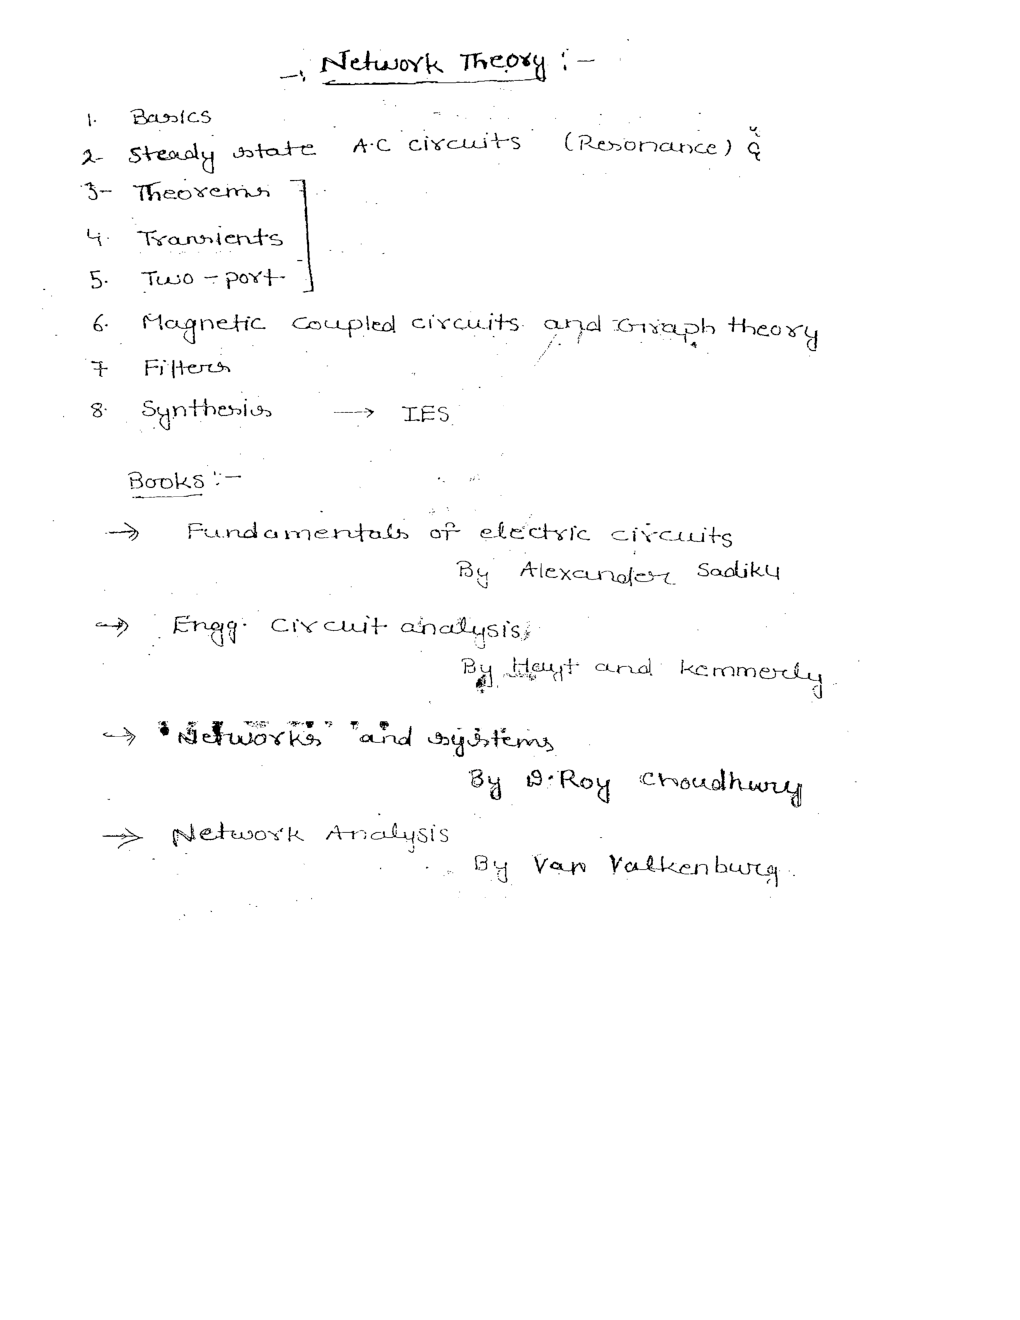 -: Network Theory :-
1. Basics
2- Steady state A.C circuits (Resonance)
3- Theorems
4. Transients
5. Two - port
6. Magnetic coupled circuits and Graph theory
7 Filters
8. Synthesis → IES
Books :-
→ Fundamentals of electric circuits
By Alexander Sadiku
→ Engg. Circuit analysis,
By Hayt and kemmerly
→ Networks and systems
By D. Roy Choudhury
→ Network Analysis
By Van Valkenburg.